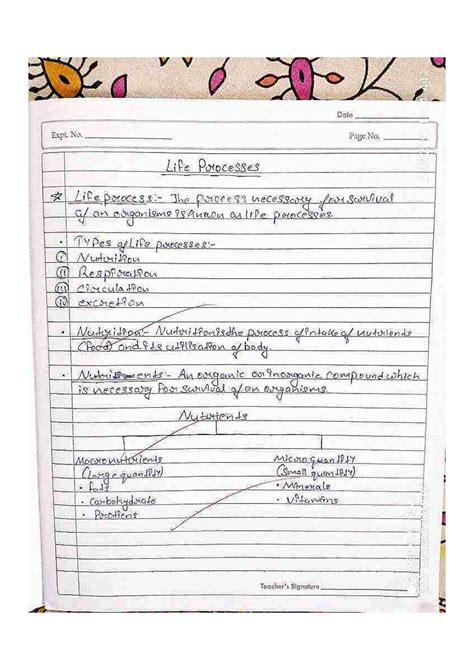 Date
Expt. No.
Page No.
Life Porocesses
☆ Life porocess:- The porocess necessary for survival
of an organisms is known as life porocesses.
• Types of Life porocesses:-
(i) Nutrition
(ii) Respiration
(iii) Circulation
(iv) excretion
• Nutrition:- Nutrition is the process of intake of nutrients
(food) and its utilisation of body.
• Nutriments:- An organic or inorganic compound which
is necessary for survival of an organisms.
Nutrients
Macronutrients
(Large quantity)
• Fats
• Carbohydrate
• Protiens
Micro quantity
(Small quantity)
• Minerals
• Vitamins
Teacher's Signature